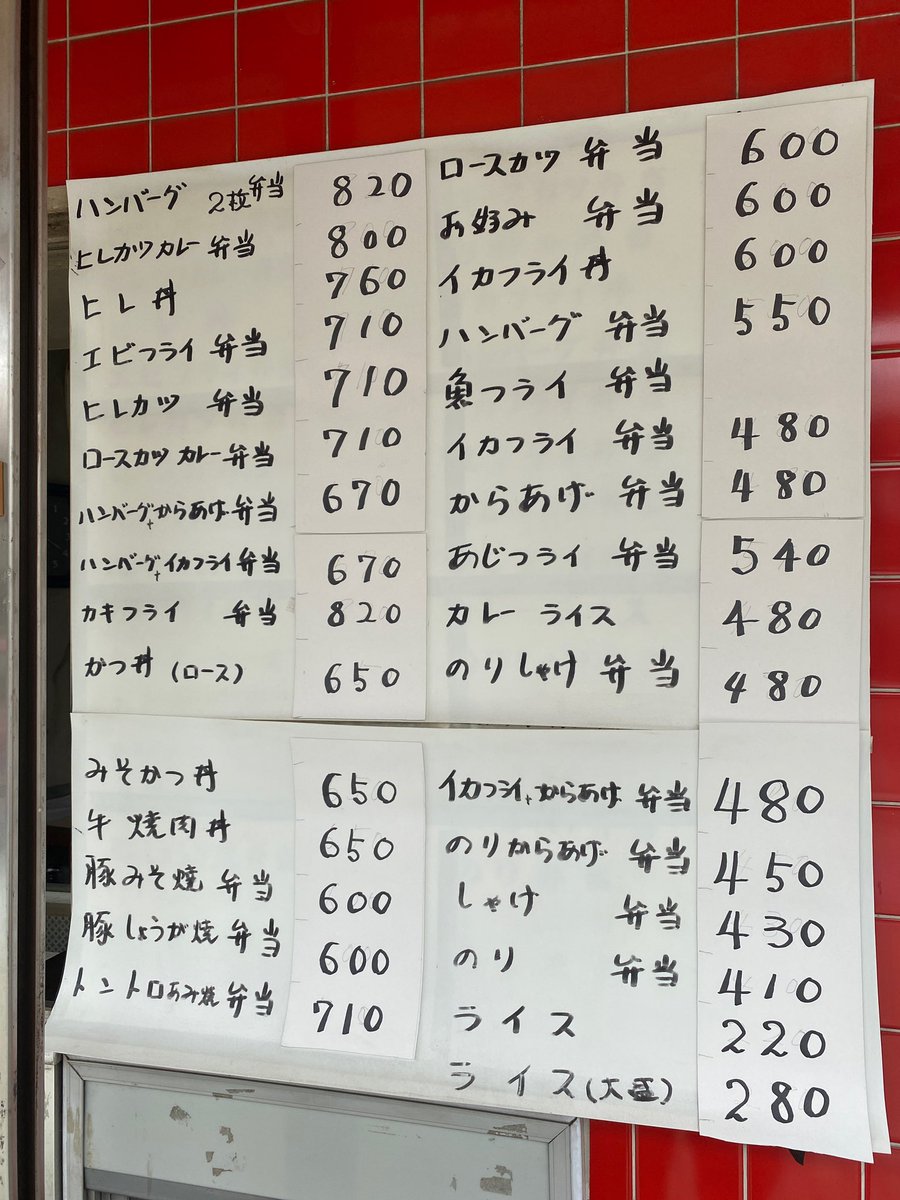 ハンバーグ 2枚弁当 820
ヒレカツカレー 弁当 800
ヒレ丼 760
エビフライ 弁当 710
ヒレカツ 弁当 710
ロースカツカレー弁当 710
ハンバーグ+からあげ弁当 670
ハンバーグ+イカフライ弁当 670
カキフライ 弁当 820
かつ丼 (ロース) 650
みそかつ丼 650
牛焼肉丼 650
豚みそ焼 弁当 600
豚しょうが焼 弁当 600
トントロあみ焼弁当 710
ロースカツ 弁当 600
お好み 弁当 600
イカフライ丼 600
ハンバーグ 弁当 550
魚フライ 弁当
イカフライ 弁当 480
からあげ 弁当 480
あじフライ 弁当 540
カレーライス 480
のりしゃけ 弁当 480
イカフライ+からあげ 弁当 480
のりからあげ 弁当 450
しゃけ 弁当 430
のり 弁当 410
ライス 220
ライス(大盛) 280